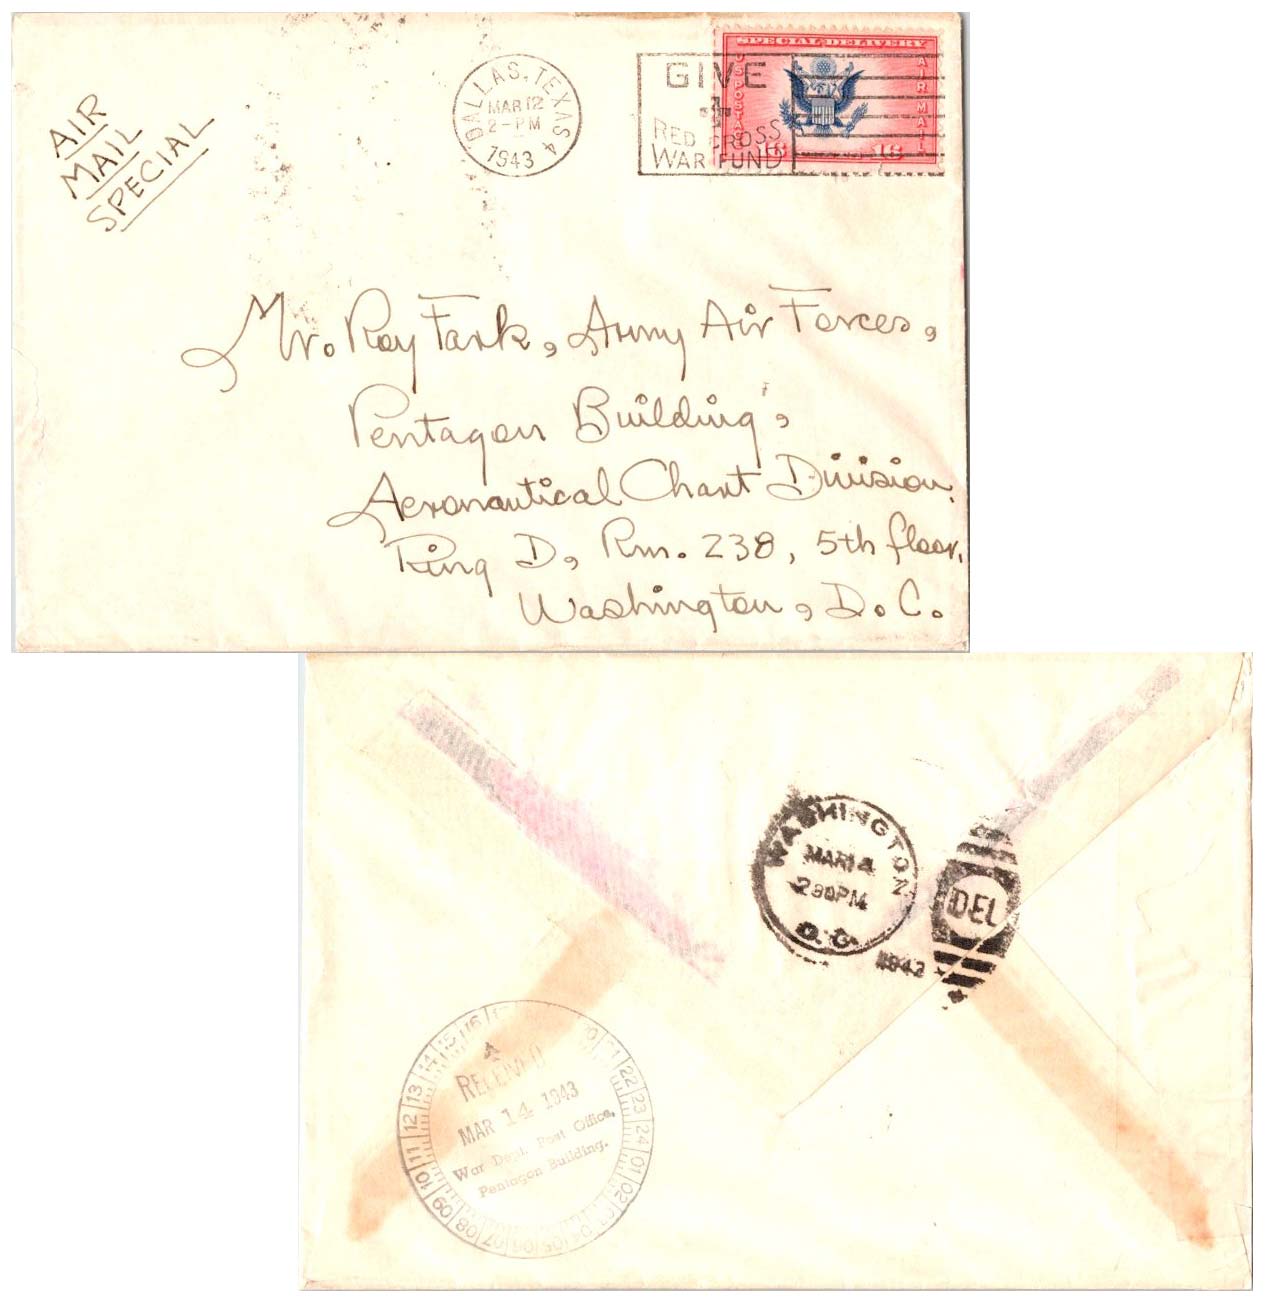 AIR
MAIL
SPECIAL
DALLAS, TEXAS 4
MAR 12
2-PM
1943
GIVE
RED CROSS
WAR FUND
SPECIAL DELIVERY
U S POSTAGE
AIR MAIL
16 16
Mr. Roy Fark, Army Air Forces,
Pentagon Building,
Aeronautical Chart Division,
Ring D, Rm. 238, 5th floor,
Washington, D.C.
WASHINGTON
MAR 14
2 30 PM
D.C.
1943
DEL
RECEIVED
MAR 14 1943
War Dept. Post Office,
Pentagon Building.
20 21 22 23 24 01 02 03 04 05 06 07 08 09 10 11 12 13 14 15 16